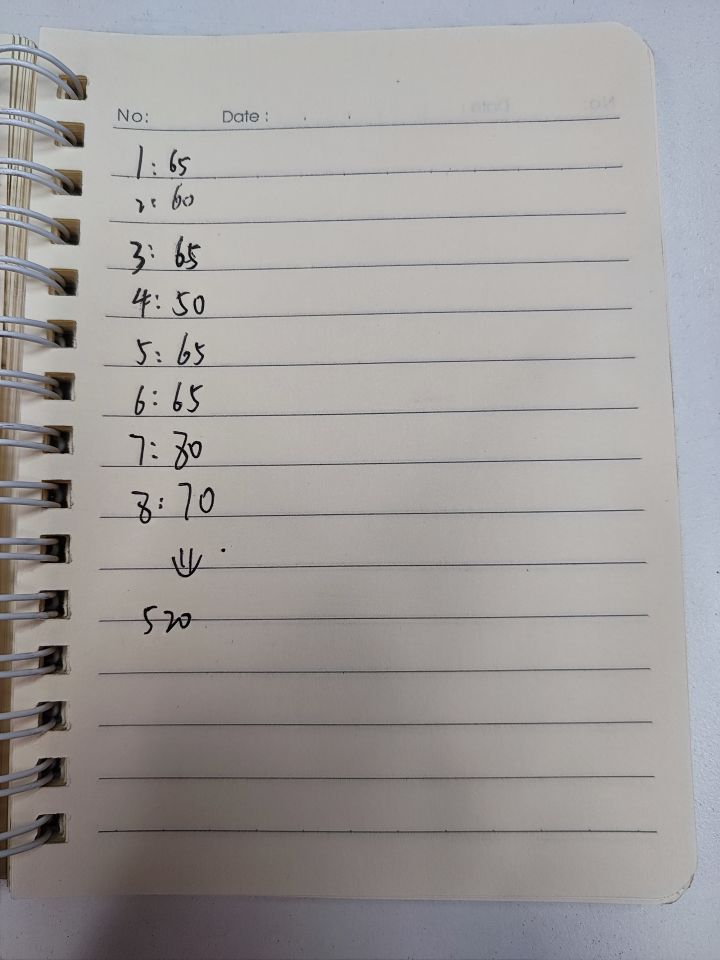 No: Date:
1: 65
2: 60
3: 65
4: 50
5: 65
6: 65
7: 80
8: 70
⇓
520